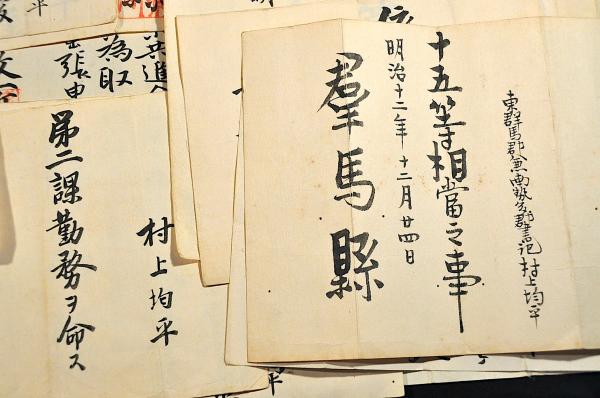 東群馬郡兼南勢多郡書記村上均平
十五等相當之事
明治十二年十二月廿四日
羣馬縣
村上均平
第二課勤務ヲ命ス
為取
出張申
平
平